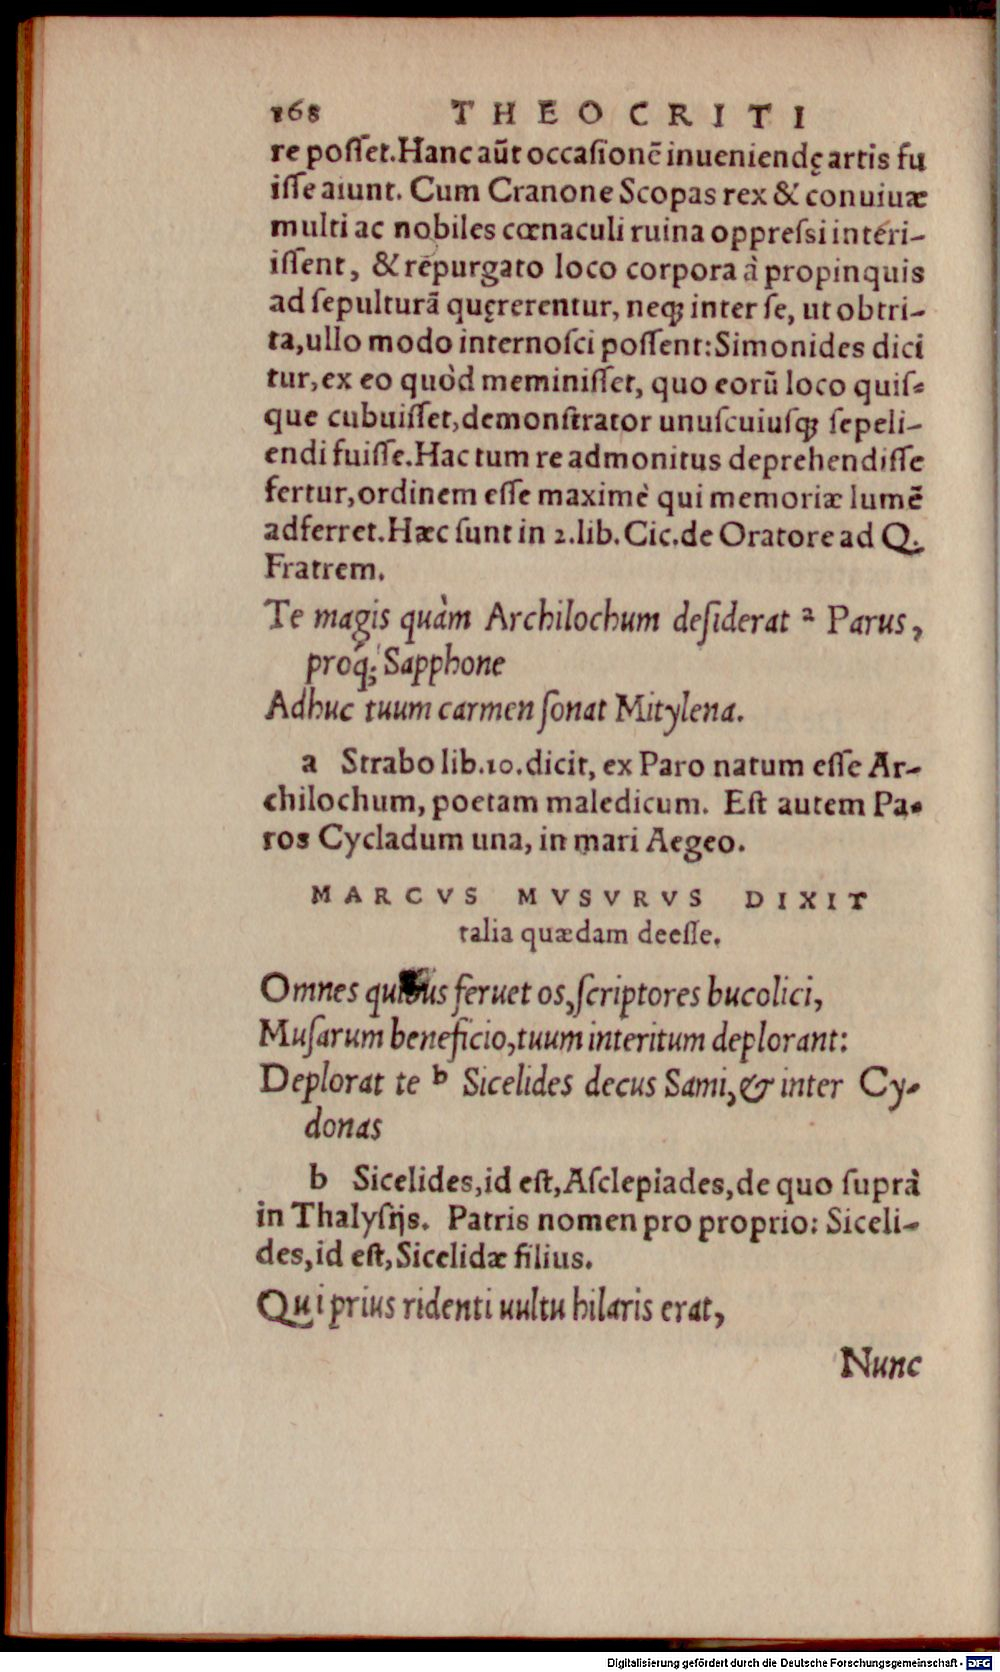 168 THEOCRITI
re poſſet. Hanc aũt occaſionẽ inueniendę artis fu
iſſe aiunt. Cum Cranone Scopas rex & conuiuæ
multi ac nobiles cœnaculi ruina oppreſsi interi-
iſſent, & repurgato loco corpora à propinquis
ad ſepulturã quęrerentur, neq; inter ſe, ut obtri-
ta, ullo modo internoſci poſſent: Simonides dici
tur, ex eo quòd meminiſſet, quo eorũ loco quiſ-
que cubuiſſet, demonſtrator unuſcuiuſq; ſepeli-
endi fuiſſe. Hac tum re admonitus deprehendiſſe
fertur, ordinem eſſe maximè qui memoriæ lumẽ
adferret. Hæc ſunt in 2. lib. Cic. de Oratore ad Q.
Fratrem.
Te magis quàm Archilochum deſiderat a Parus,
proq́; Sapphone
Adhuc tuum carmen ſonat Mitylena.
a Strabo lib. 10. dicit, ex Paro natum eſſe Ar-
chilochum, poetam maledicum. Eſt autem Pa-
ros Cycladum una, in mari Aegeo.
MARCVS MVSVRVS DIXIT
talia quædam deeſſe.
Omnes quibus feruet os, ſcriptores bucolici,
Muſarum beneficio, tuum interitum deplorant:
Deplorat te b Sicelides decus Sami, & inter Cy-
donas
b Sicelides, id eſt, Aſclepiades, de quo ſuprà
in Thalyſijs. Patris nomen pro proprio: Siceli-
des, id eſt, Sicelidæ filius.
Qui prius ridenti uultu hilaris erat,
Nunc
Digitalisierung gefördert durch die Deutsche Forschungsgemeinschaft - DFG